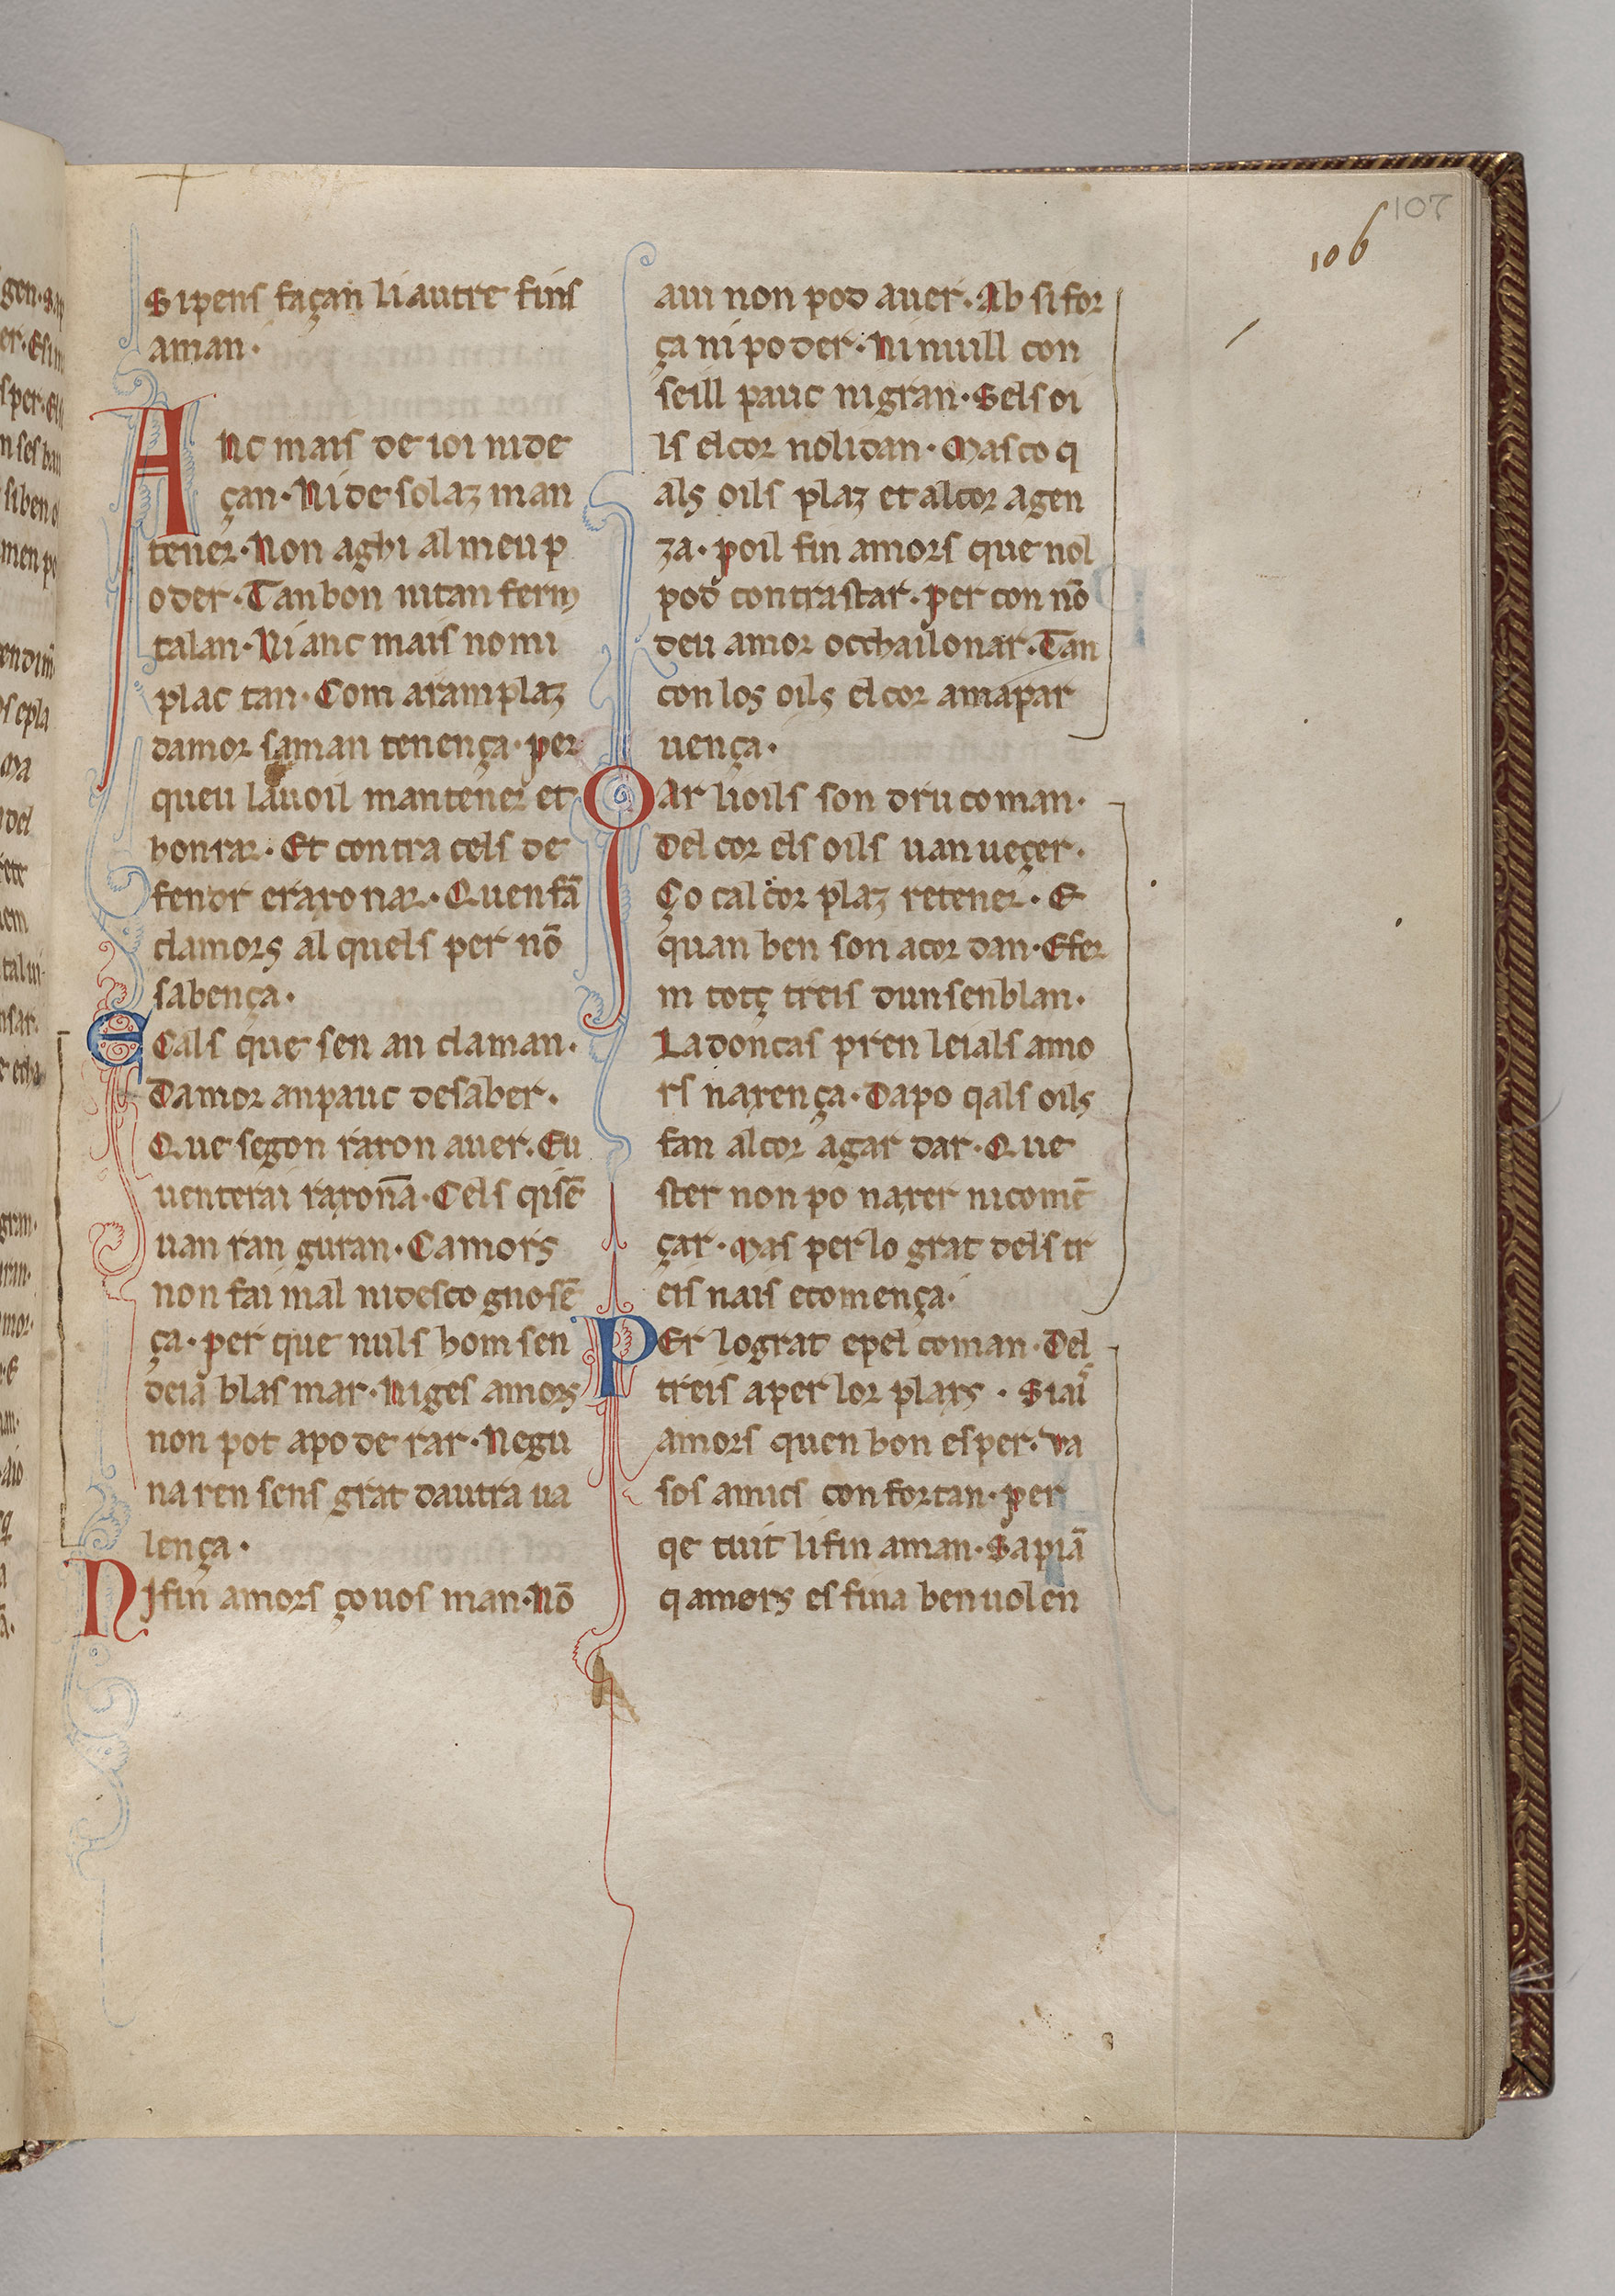 107
106
Sipens façan li autre fins
aman·
Anc mais de ioi ni de
çan· Ni de solaz man
tener· Non aghi al meu p
oder· Tan bon ni tan ferm
talan· Ni anc mais no mi
plac tan· Com aram plaz
damor saman tenença· per
queu lauoil mantener et
honrar· Et contra cels de
fendr eraxonar· Quen fā
clamors al quels per nō
sabença·
E Cals que sen an claman·
Damor an pauc de saber·
Que segon raxon auer· Eu
uenterai raxonā· Cels qisē
uan ran guran· Camors
non fai mal ni desco gnosē
ça· per que nuls hom sen
deiā blasmar· Ni ges amors
non pot apo de rar· Negu
na ren sens grat dautra ua
lença·
Ni fin amors ço uos man· Nō
aui non pod auer· Ab si for
ça ni poder· Ni nuill con
seill pauc ni gran· Sels oi
ls el cor noli dan· Mas co q
als oils plaz et al cor agen
za· poil fin amors que nol
pod contrastar· per con nō
deu amor occhailonar· Tan
con los oils el cor ama par
uença·
Qar li oils son drucoman·
Del cor els oils uan ueçer·
Ço cal cor plaz retener· E
quan ben son acor dan· E fer
m totç treis dun senblan·
Ladoncas pren leials amo
rs naxença· Dapo qals oils
fan al cor agar dar· Que
ster non po naxer ni comē
çar· Mas per lo grat dels tr
eis nais ecomença·
Per lo grat epel coman· Del
treis aper lor plaxs· Siai
amors quen bon esper· Va
sos amics confortan· per
qe tuit li fin aman· Sapiā
q amors es fina ben uolen